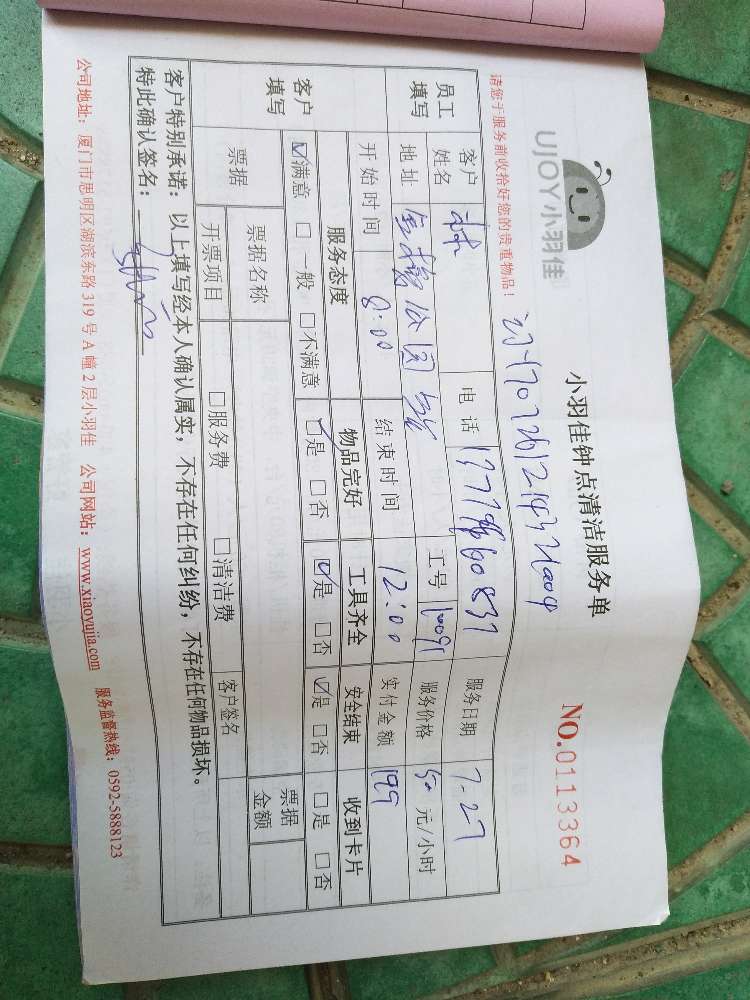 UJOY小羽佳
小羽佳钟点清洁服务单
NO.0113364
请您于服务前收拾好您的贵重物品！
员工填写
客户姓名 林 电话 服务日期 7-27
地址 金榜公园 工号 10091 服务价格 50 元/小时
开始时间 8:00 结束时间 12:00 实付金额 199
客户填写
服务态度 物品完好 工具齐全 安全结束 收到卡片
☑满意 □一般 □不满意 ☑是 □否 ☑是 □否 ☑是 □否 □是 □否
票据 票据名称 票据金额
开票项目 □服务费 □清洁费 客户签名
客户特别承诺：以上填写经本人确认属实，不存在任何纠纷，不存在任何物品损坏。
特此确认签名：
公司地址：厦门市思明区湖滨东路 319 号 A 幢 2 层小羽佳 公司网站：www.xiaoyujia.com 服务监督热线：0592-5888123